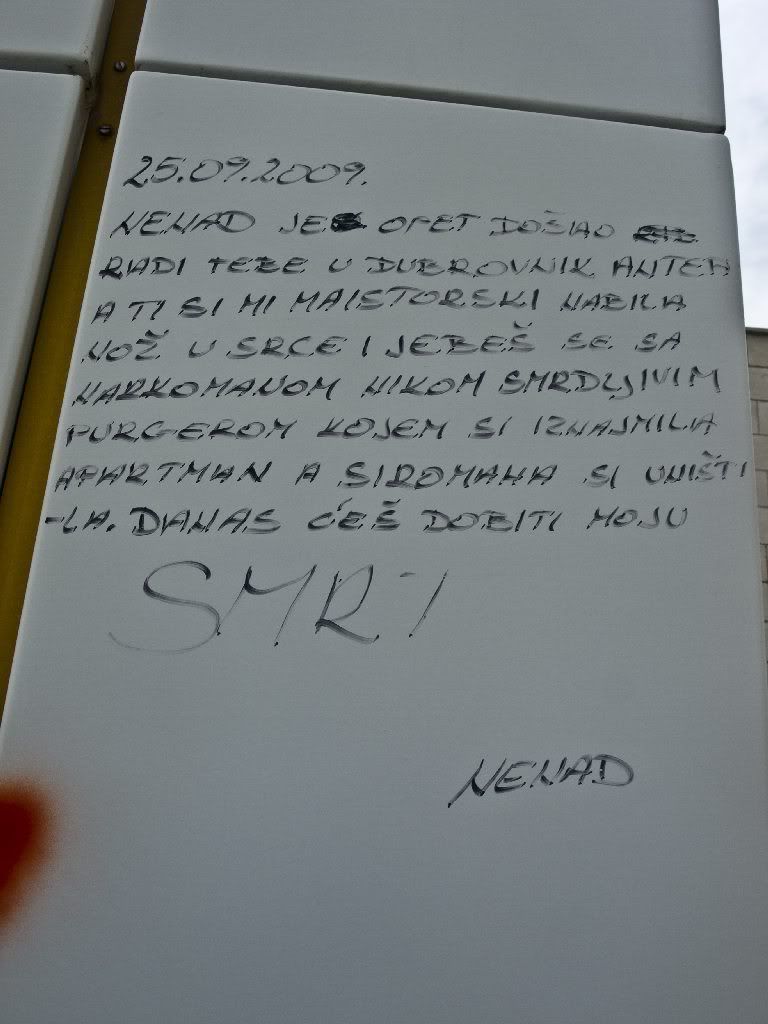 25.09.2009.
NENAD JE OPET DOŠAO
RADI TEBE U DUBROVNIK ANTEA
A TI SI MI MAISTORSKI NABILA
NOŽ U SRCE I JEBEŠ SE SA
NARKOMANOM NIKOM SMRDLJIVIM
PURGEROM KOJEM SI IZNAJMILA
APARTMAN A SIROMAHA SI UNIŠTI
-LA. DANAS ĆEŠ DOBITI MOJU
SMRT
NENAD